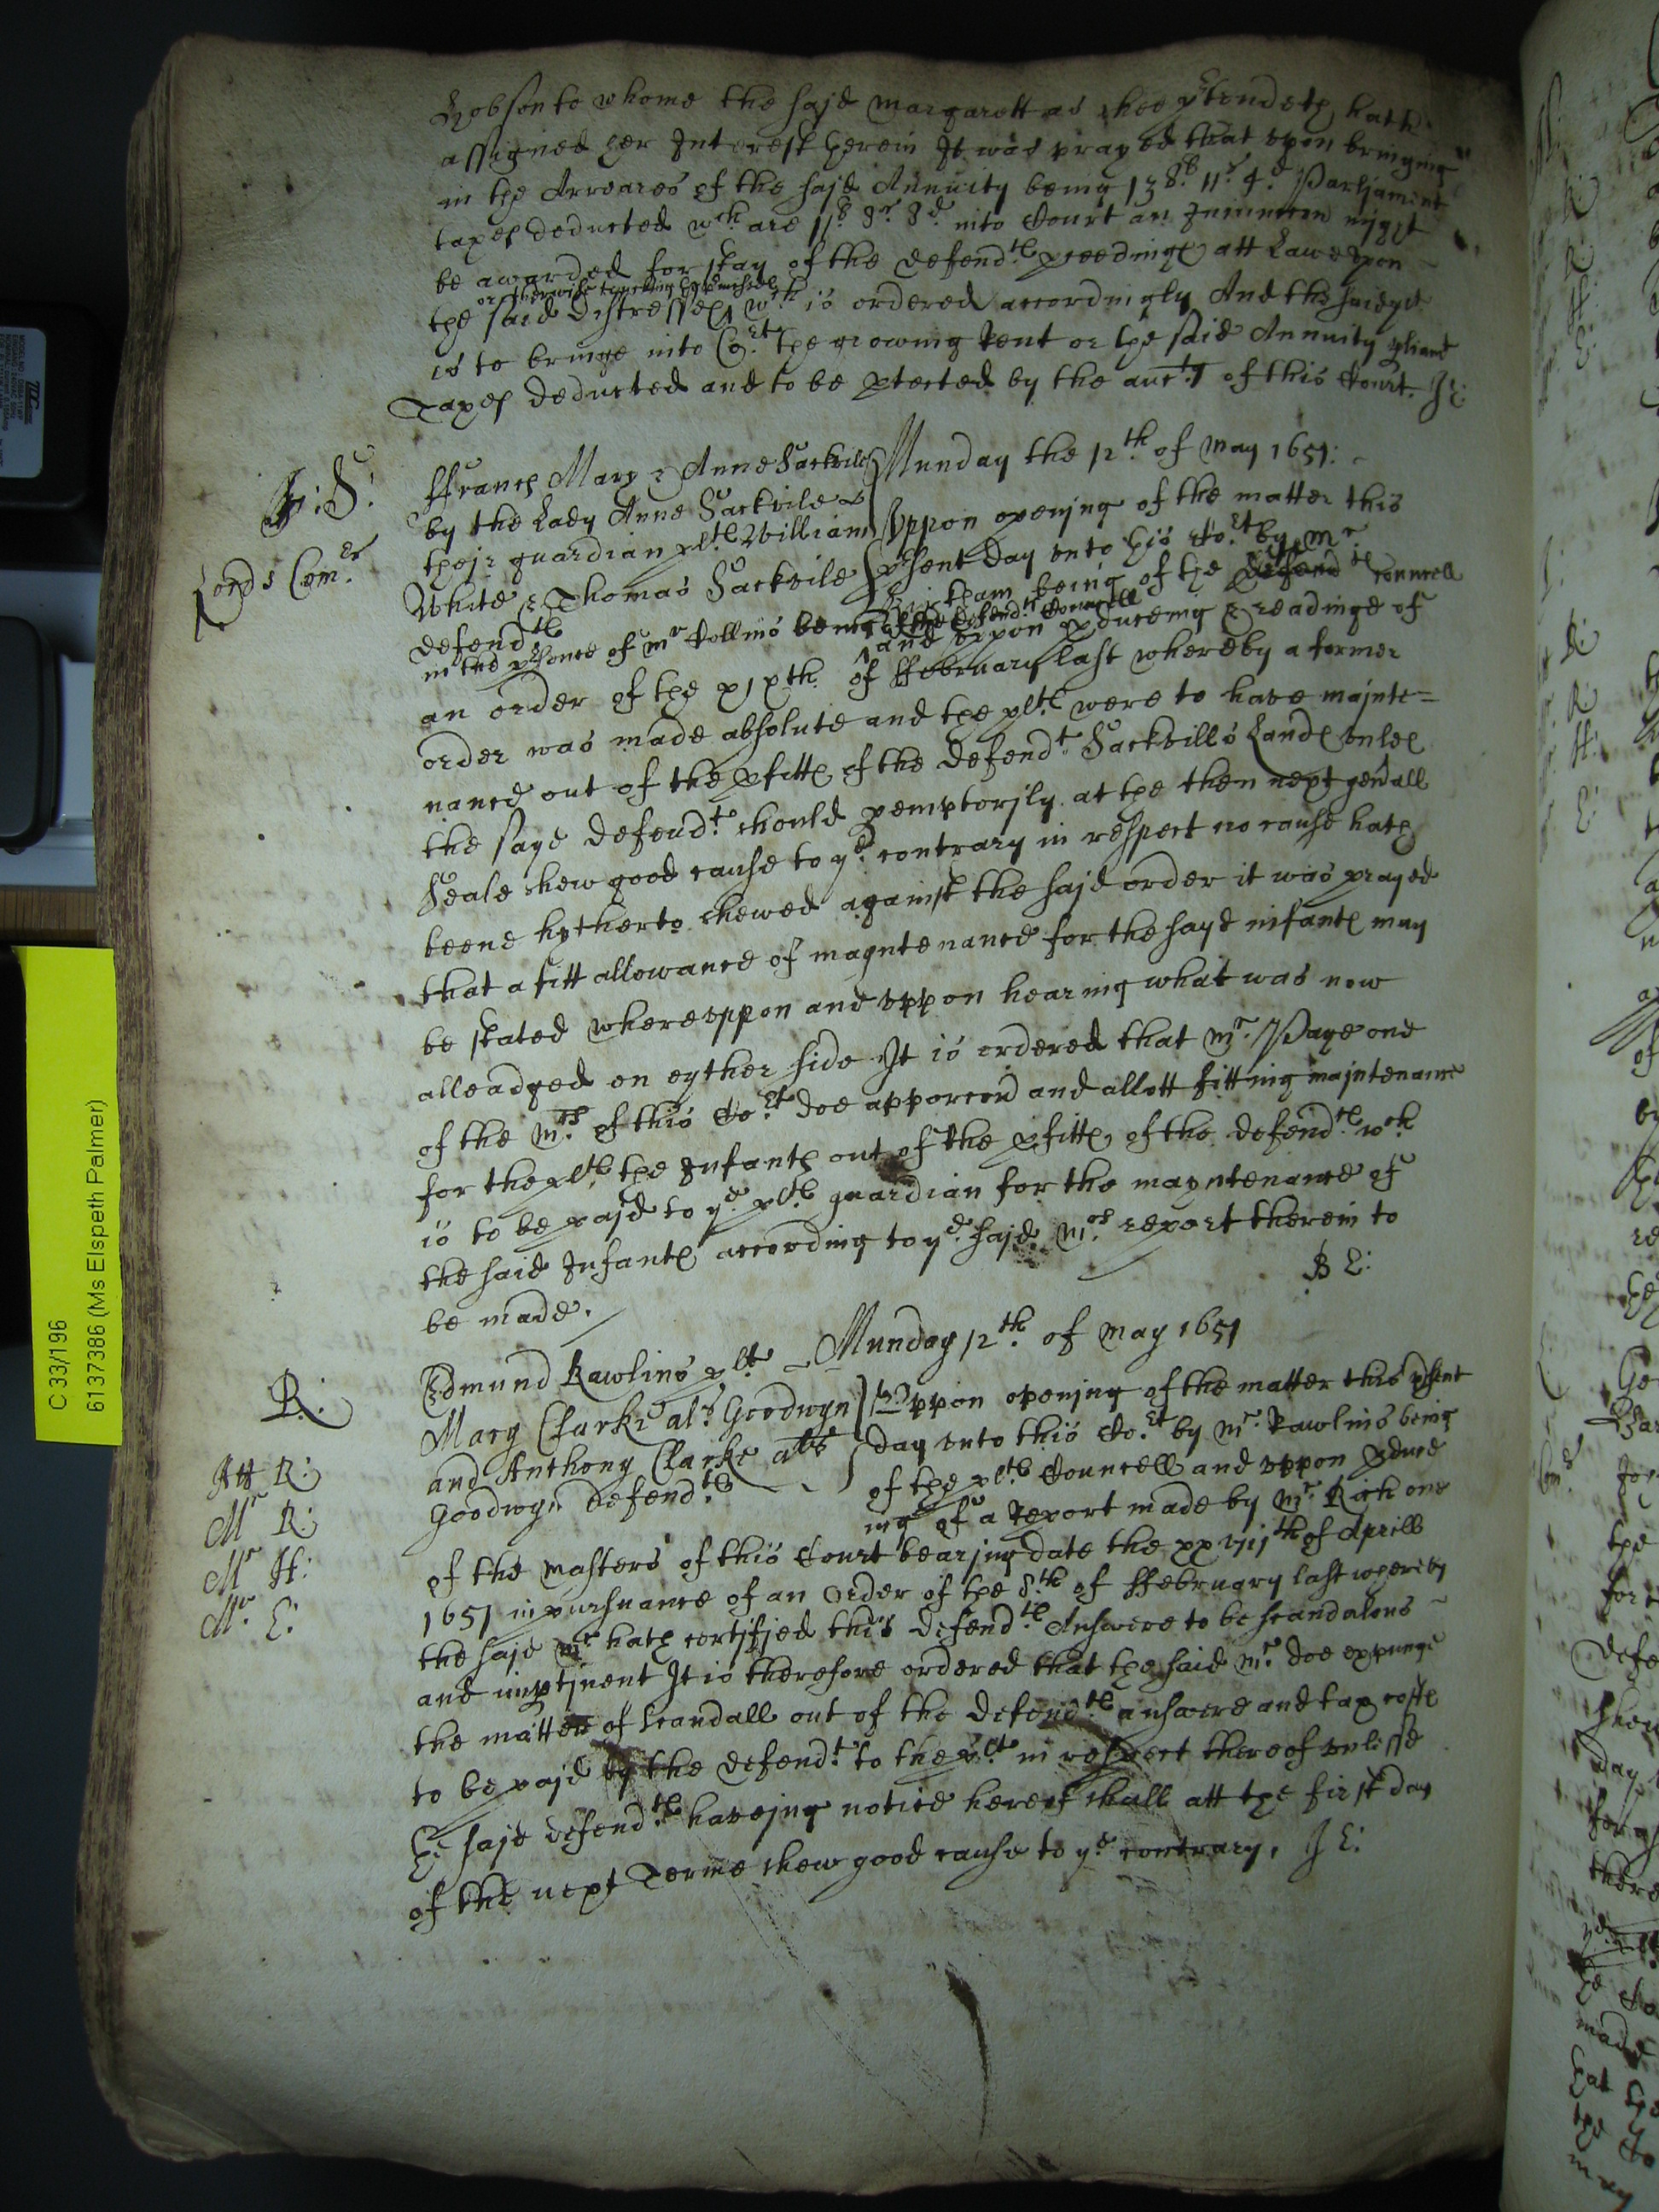 Hobson to whome the sajd Margarett as shee p[re]tendeth hath
assigned her Interest herein It was prayed that vpon bringing
in the Arreares of the sajd Annuity being 138li 11s 4d Parljament
taxes deducted wch are 11li 8s 8d into Court an Iniunccon might
be awarded for stay of the defendts pceedings att Lawe vpon
or otherwise touching the premisses
the said distresses wch is ordered accordingly And the said plt
is to bringe into Cort the growing Rent or the said Annuity
Taxes deducted and to be ptected by the aucty of this Court. J E:
F: S:
Lords Comrs
ffrancs Mary & Anne Sackvile
by the Lady Anne Sackvile
thejr guardian plts William
White & Thomas Sackvile
defendts
Munday the 12th of May 1651:
Vppon openjng of the matter this
psent day vnto this Cort by Mr
being of the Councell
in the psence of Mr Collins being of the defendts Councell
and vppon pduceing & readinge of
an order of the xixth of ffebruary last whereby a former
order was made absolute and the plts were to have majnte=
nance out of the pfitts of the defendt Sackvills Lands vnles
the sayd defendt should pemptorjly at the then next genrall
Seale shew good cause to ye contrary in respect no cause hath
beene hytherto shewed against the sajd order it was prayed
that a fitt allowance of mayntenance for the sayd infants may
be stated wherevppon and vppon hearing what was now
alleadged on eyther side It is ordered that Mr Page one
of the Mrs of this Cort doe apporcon and allott fitting majntenance
for the plts the Infants out of the pfitts of the defendts wch
is to be pajd to ye plts guardian for the mayntenance of
the said Infants according to ye sajd Mrs report therein to
be made.
B E:
R:
Att R:
Mr R:
Mr H:
Mr E:
Edmund Rawlins plt
Mary Clarke als Goodwyn
and Anthony Clarke als
Goodwyn defendts
Munday 12th of May 1651
Vppon openjng of the matter this psent
day vnto this Cort by Mr Rawlins being
of the plts Councell and vppon pduce
ing of a Report made by Mr Rich one
of the Masters of this Court bearjng date the xxviijth of Aprill
1651 in pursuance of an Order of the 8th of ffebruary last whereby
the sajd Mr hath certifjed this defendts Answere to be scandalous
and impertjnent It is therefore ordered that the said Mr doe expunge
the matter of scandall out of the defendts answere and tax costs
to be pajd by the defendt to the plt in respect thereof vnlesse
the sajd defendts havejng notice hereof shall att the first day
of the next Terme shew good cause to ye contrary. J E:
C 33/196
61377386 (Ms Elspeth Palmer)